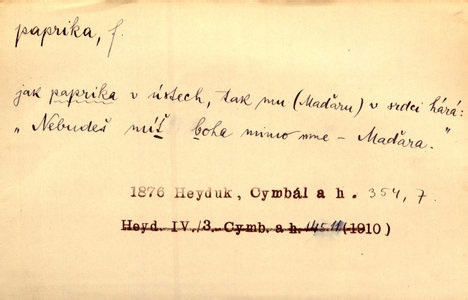 paprika, f.
jak paprika v ústech, tak mu (Maďaru) v srdci hárá:
"Nebudeš míť boha mimo mne – Maďara."
1876 Heyduk, Cymbál a h. 354, 7.
Heyd. IV./3. Cymb. a h. (1910)